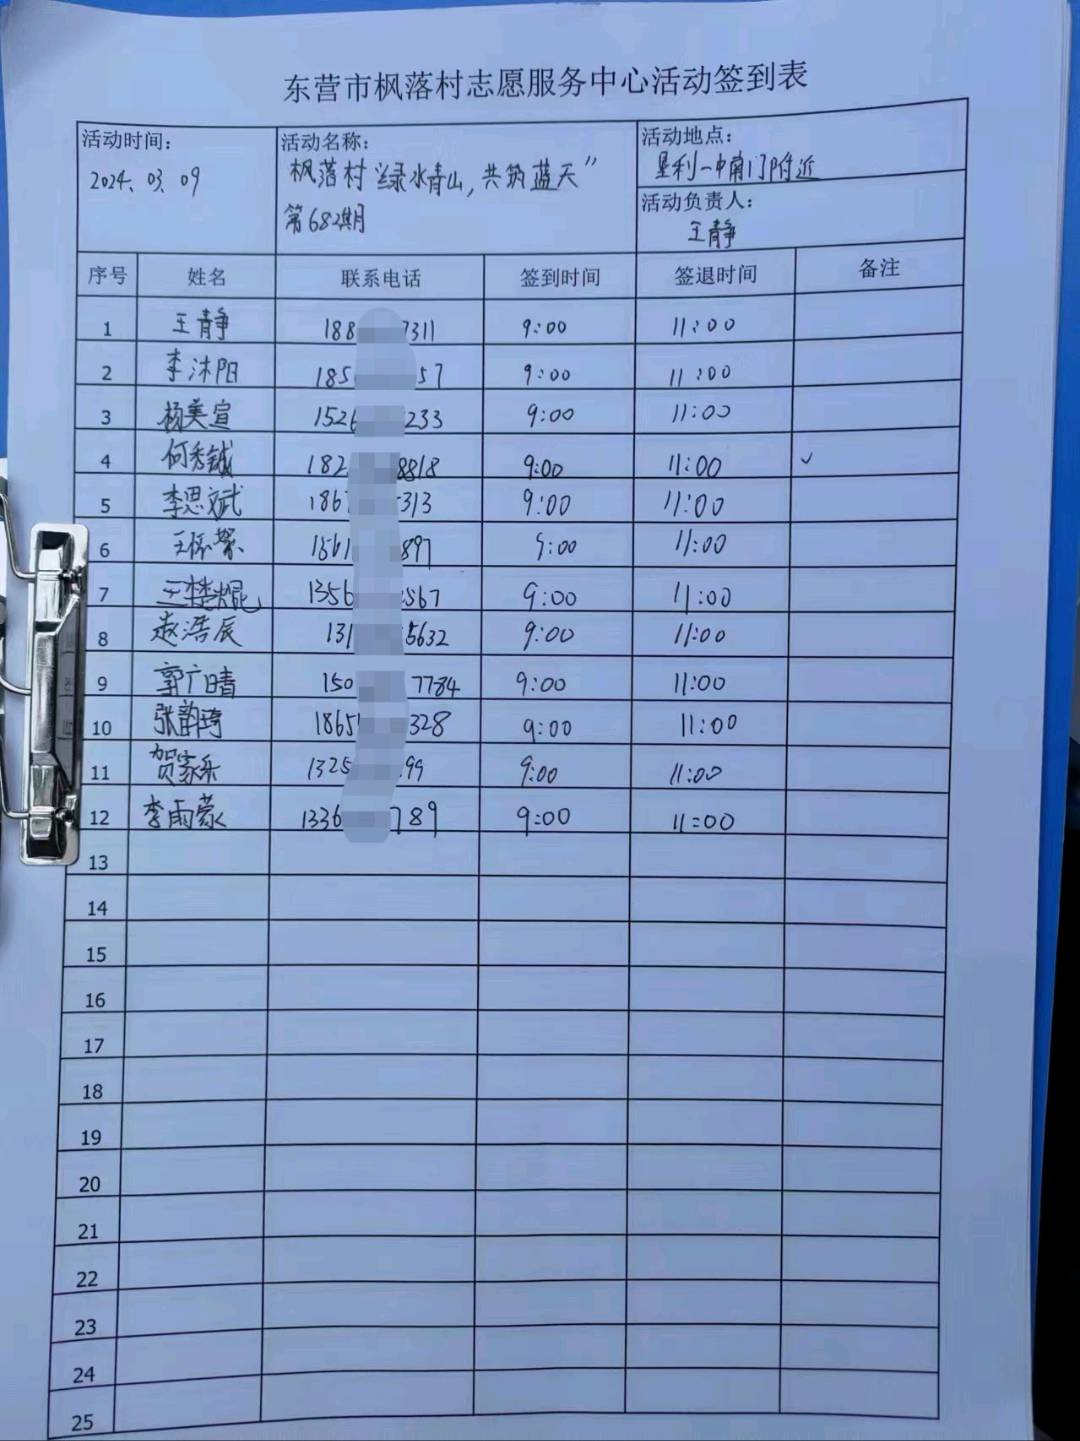 东营市枫落村志愿服务中心活动签到表
活动时间：
2024.03.09
活动名称：
枫落村“绿水青山,共筑蓝天”
第682期
活动地点：
垦利一中南门附近
活动负责人：
王静
序号 姓名 联系电话 签到时间 签退时间 备注
1 王静 188 7311 9:00 11:00
2 李沐阳 185 57 9:00 11:00
3 杨美萱 1526 233 9:00 11:00
4 何秀铖 182 8818 9:00 11:00 ✓
5 李思斌 1867 313 9:00 11:00
6 1561 897 9:00 11:00
7 1356 567 9:00 11:00
8 赵浩辰 131 5632 9:00 11:00
9 郭广晴 150 7784 9:00 11:00
10 张韵琦 1865 328 9:00 11:00
11 贺家乐 1325 99 9:00 11:00
12 李雨蒙 1336 789 9:00 11:00
13
14
15
16
17
18
19
20
21
22
23
24
25